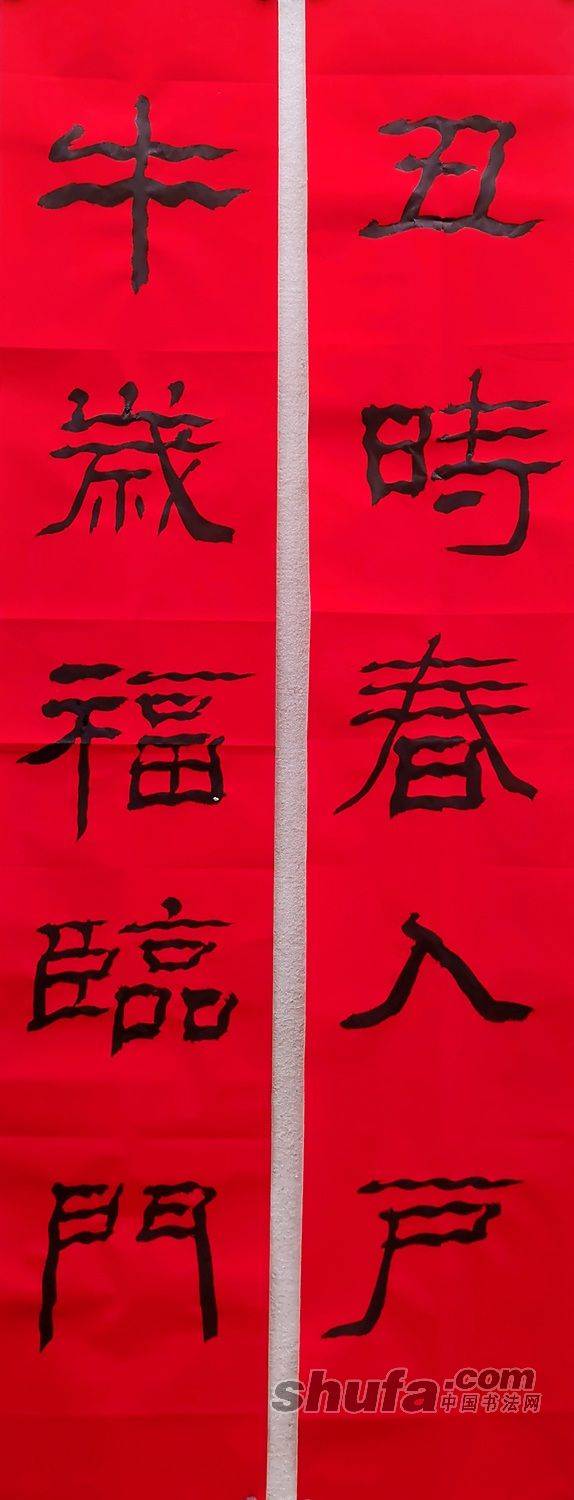 丑時春入戶
牛歲福臨門
shufa.com
中国书法网